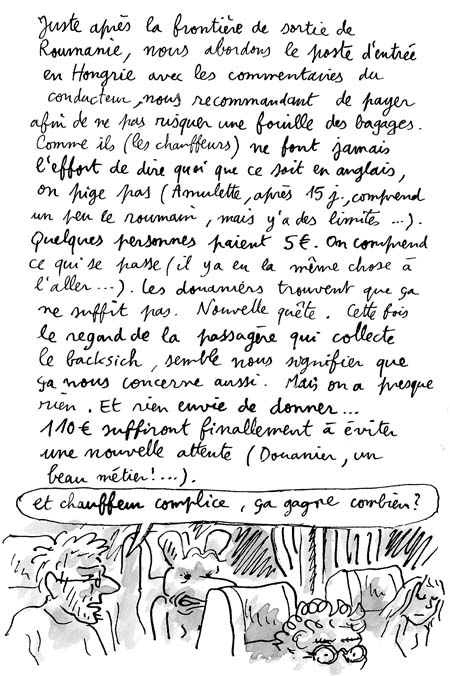 Juste après la frontière de sortie de
Roumanie, nous abordons le poste d'entrée
en Hongrie avec les commentaires du
conducteur, nous recommandant de payer
afin de ne pas risquer une fouille des bagages.
Comme ils (les chauffeurs) ne font jamais
l'effort de dire quoi que ce soit en anglais,
on pige pas (Amulette, après 15 j., comprend
un peu le roumain, mais y'a des limites...).
Quelques personnes paient 5€. On comprend
ce qui se passe (il y a eu la même chose à
l'aller...). Les douaniers trouvent que ça
ne suffit pas. Nouvelle quête. Cette fois
le regard de la passagère qui collecte
le backsich, semble nous signifier que
ça nous concerne aussi. Mais on a presque
rien. Et rien envie de donner...
110€ suffiront finallement à éviter
une nouvelle attente (Douanier, un
beau métier!...).
et chauffeur complice, ça gagne combien?